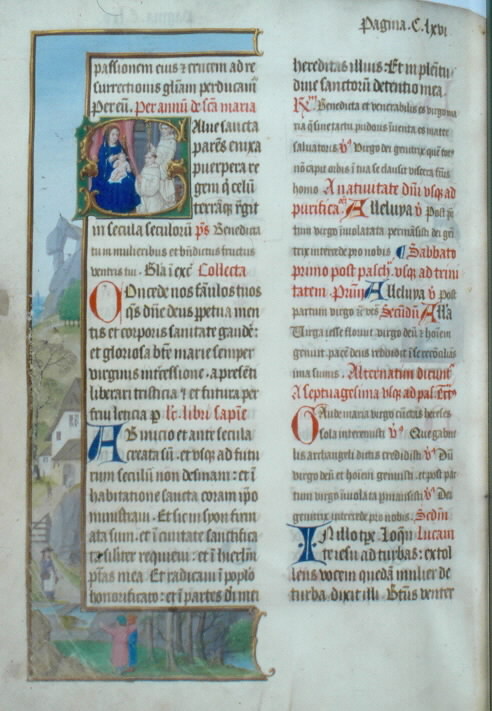 Pagina. C. lxvi
passionem eius ⁊ crucem ad re
surrectionis gl̃iam perducam̃
Per eũ. Per annũ de sc̃a maria
Salue sancta
parẽs enixa
puerpera re
gem q̃ celũ
terrãq̃ regit
in secula seculorũ p̃s Benedicta
tu in mulieribus et bñdictus fructus
ventris tui. Gl̃a ĩ exc̃ Collecta
Concede nos famlos tuos
q̃s dñe deus ꝑpetua men
tis et corporis sanitate gaude:
et gloriosa bt̃e marie semper
virginis intercessione. a presẽti
liberari tristicia ⁊ et futura per
frui leticia p lc̃. libri sapiẽ
Ab inicio et ante secula
creata sũ. et vsq̃ ad futu
rum seculũ non desinam: et ĩ
habitatione sancta coram ip̃o
ministraui. Et sic in syon firm
ata sum. et ĩ ciuitate sanctifica
ta siliter requieui: et ĩ hierl̃m
p̃tas mea. Et radicaui ĩ pop̃lo
honorificato: et ĩ partes di mei
hereditas illius: Et in plẽitu
dine sanctorũ detentio mea.
Benedicta et venerabilis es virgo ma
ria q̃ sine tactu pudoris ĩuenta es mater
saluatoris v̾ Virgo dei genitrix quẽ tot9
nõ capit orbis ĩ tua se clausit viscera fc̃us
homo A natiuitate dñi vsq̃ ad
purificaõẽ Alleluya v̾ Post p
tum virgo ĩuiolata permãsisti dei gẽi
trix intercede pro nobis Sabbato
primo post pasch̾. vsq̃ ad trini
tatem. Prim̃ Alleluya v̾ Post
partum virgo ⁊c̃ ves Secũdũ Alla
Virga iesse floruit. virgo deũ ⁊ hoĩem
genuit. pacẽ deus reddidit ĩ se recõciliãs
ima sumis. Alternatim dicunt̃
A septuagesima vsq̃ ad pasc̃
Gaude maria virgo cũctas hereses
sola interemisti v̾ Que gabrie
lis archangeli dictis credidisti v̾ Dũ
virgo deũ et hoĩem genuisti. et post par
tum virgo ĩuiolata pmansisti v̾ Dei
genitrix intercede pro nobis. Secdm̃
In illo tp̃e. Loq̃n̄ Lucam
te iesu ad turbas: extol
lens vocem quedã mulier de
turba dixit illi. Bt̃us venter